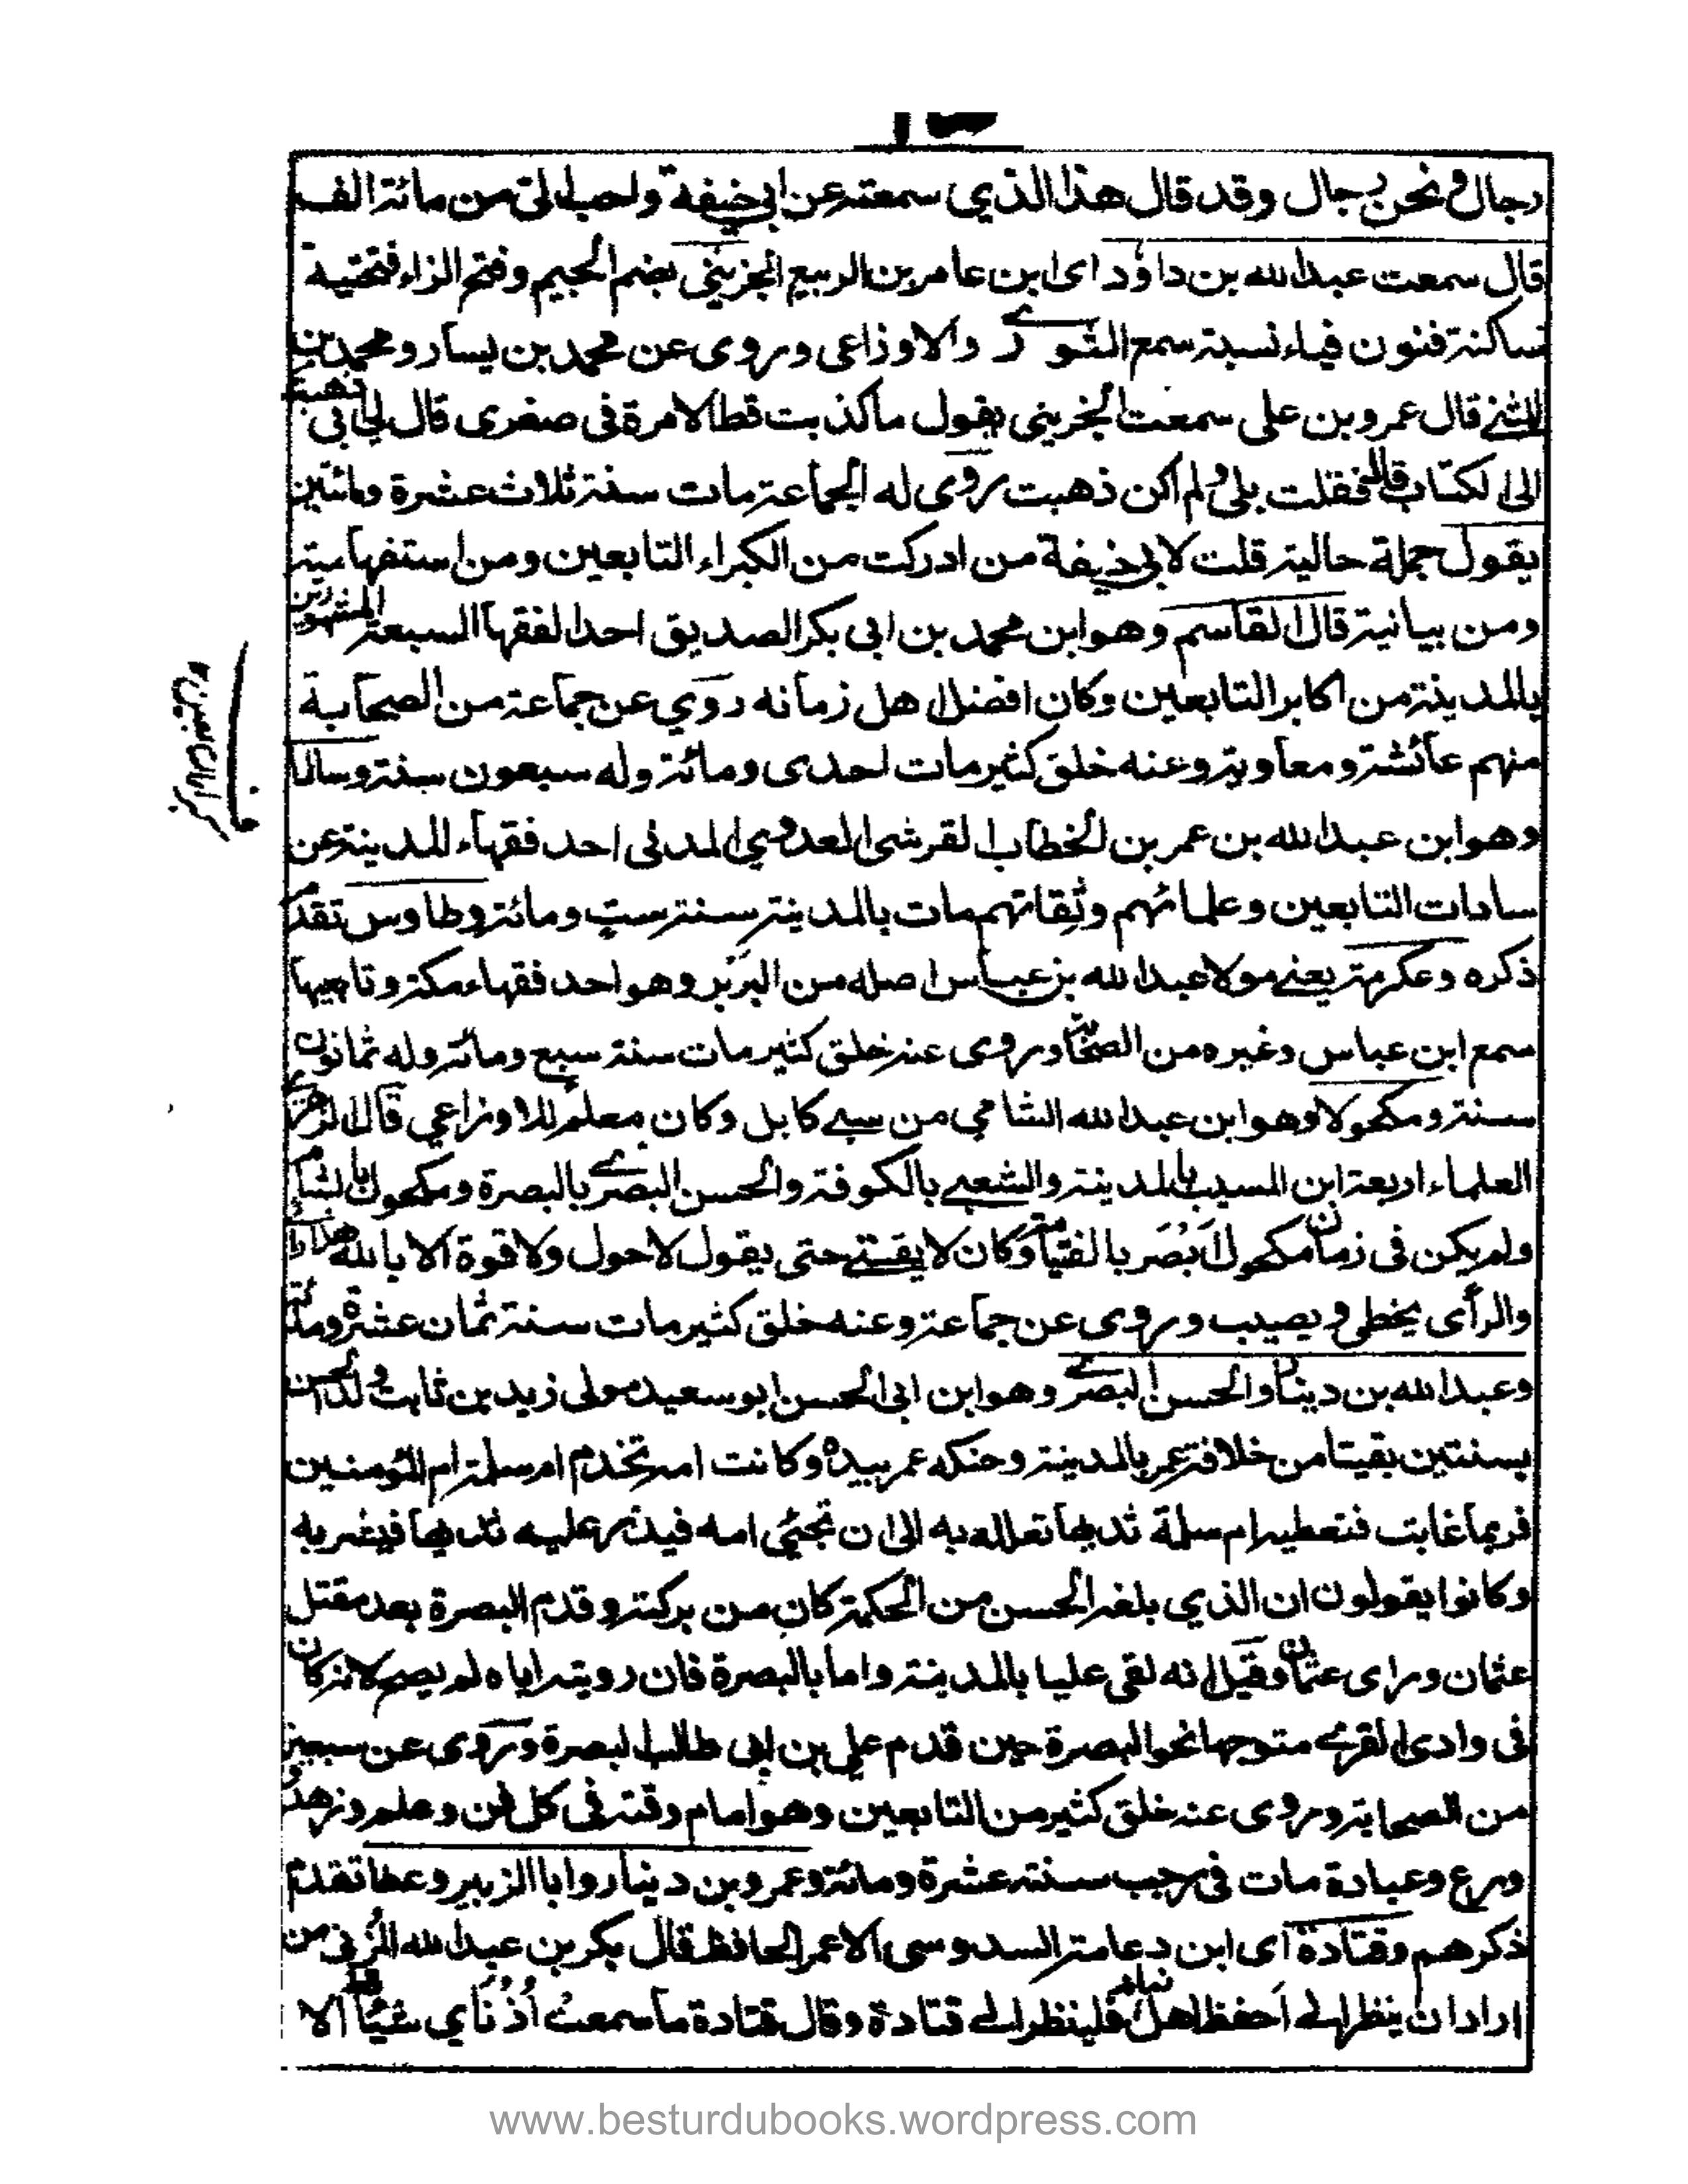 رجال ونحن رجال وقد قال هذا الذي سمعته عن ابي حنيفة واحب الى من مائة الف
قال سمعت عبد الله بن داؤد اى ابن عامر بن الربيع الخريبى بضم الجيم وفتح الزاء فتحتية
ساكنة فنون فياء نسبة سمع الثورے والاوزاعى وروى عن محمد بن يسار ومحمد بن
المثنے قال عمرو بن على سمعت الخريبى يقول ما كذبت قط الا مرة فى صغرى قال لى ابى ذهبت
الى الكتاب قال فقلت بلى ولم اكن ذهبت روى له الجماعة مات سنة ثلاث عشرة ومائتين
يقول جملة حالية قلت لابي حنيفة من ادركت من الكبراء التابعين ومن استفهامية
ومن بيانية قال القاسم وهو ابن محمد بن ابى بكر الصديق احد الفقهاء السبعة المشهورين
بالمدينة من اكابر التابعين وكان افضل اهل زمانه روي عن جماعة من الصحابة
منهم عائشة ومعاوية وعنه خلق كثير مات احدى ومائة وله سبعون سنة وسالما
وهو ابن عبد الله بن عمر بن الخطاب القرشى العدوي المدنى احد فقهاء المدينة عن
سادات التابعين وعلمائهم وثقاتهم مات بالمدينة سنة ست ومائة وطاوس تقدم
ذكره وعكرمة يعنے مولا عبد الله بن عباس اصله من البربر وهو احد فقهاء مكة وتابعيها
سمع ابن عباس وغيره من الصحابة وروى عنه خلق كثير مات سنة سبع ومائة وله ثمانون
سنة ومكحولا وهو ابن عبد الله الشامي من سبے كابل وكان معلم للاوزاعي قال الزهرے
العلماء اربعة ابن المسيب بالمدينة والشعبے بالكوفة والحسن البصرے بالبصرة ومكحول بالشام
ولم يكن فى زمان مكحول اَبْصَر بالفتيا منه وكان لا يفتے حتى يقول لا حول ولا قوة الا بالله هذا رأى
والرأى يخطى ويصيب وروى عن جماعة وعنه خلق كثير مات سنة ثمان عشرة ومائة
وعبد الله بن دينار والحسن البصرے وهو ابن ابى الحسن ابو سعيد مولى زيد بن ثابت ولد الحسن
بسنتين بقيتا من خلافة عمر بالمدينة وحنكه عمر بيده وكانت امه تخدم ام سلمة ام المؤمنين
فربما غابت فتعطيه ام سلمة ثديها تعلله به الى ان تجئى امه فيدر عليه ثديها فيشربه
وكانوا يقولون ان الذي بلغه الحسن من الحكمة كان من بركته وقدم البصرة بعد مقتل
عثمان وراى عثمان وقيل انه لقى عليا بالمدينة واما بالبصرة فان رويته اياه لم يصح لانه كان
فى وادى القرے متوجها نحو البصرة حين قدم علي بن ابى طالب البصرة وروى عن سبعين
من الصحابة وروى عنه خلق كثير من التابعين وهو امام وقته فى كل فن وعلم وزهد و
ورع وعبادة مات فى رجب سنة عشرة ومائة وعمرو بن دينار وابا الزبير وعطا تقدم
ذكرهم وقتادة اى ابن دعامة السدوسى الاعمر الحافظ قال بكر بن عبد الله المُزنى من
اراد ان ينظر الے اَحفظ اهل زمانه فلينظر الے قتادة وقال قتادة ما سمعتْ اُذُنَاي شيئا قط الا
www.besturdubooks.wordpress.com